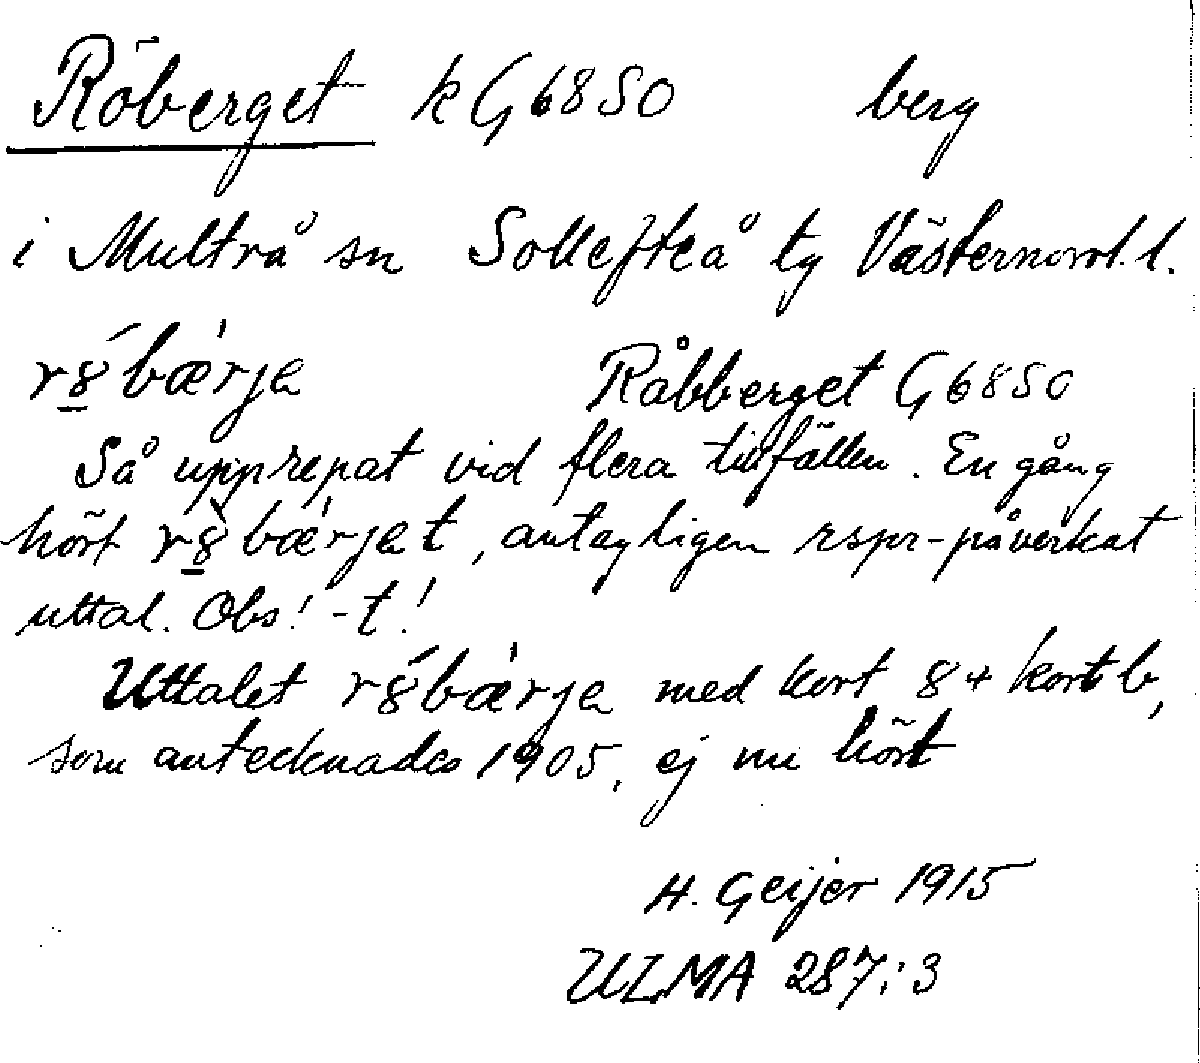 Röberget k G 68 SO berg
i Multrå sn Sollefteå tg Västernorrl. l.
rȣ́bæ̀rja Råbberget G 68 SO
Så upprepat vid flera tillfällen. En gång
hört rȣ̀bæ̀rjat, antagligen rspr-påverkat
uttal. Obs! -t!
Uttalet rȣ́bæ̀rja med kort ȣ + kort b,
som antecknades 1905, ej nu hört
H. Geijer 1915
ULMA 287:3